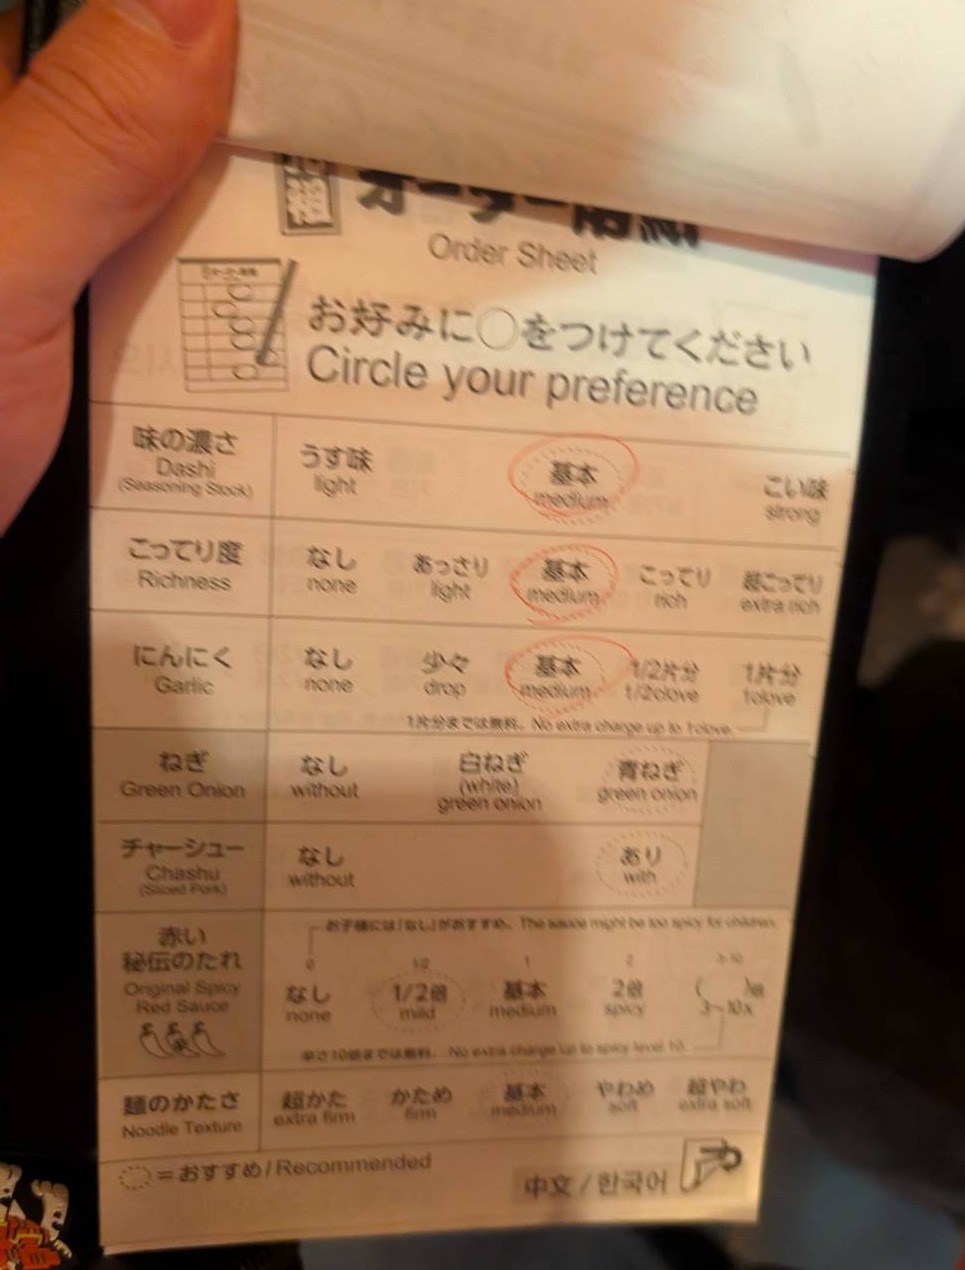 オーダー用紙
Order Sheet
お好みに○をつけてください
Circle your preference
味の濃さ
Dashi
(Seasoning Stock)
うす味
light
基本
medium
こい味
strong
こってり度
Richness
なし
none
あっさり
light
基本
medium
こってり
rich
超こってり
extra rich
にんにく
Garlic
なし
none
少々
drop
基本
medium
1/2片分
1/2clove
1片分
1clove
1片分までは無料。No extra charge up to 1clove.
ねぎ
Green Onion
なし
without
白ねぎ
(white)
green onion
青ねぎ
green onion
チャーシュー
Chashu
(Sliced Pork)
なし
without
あり
with
赤い
秘伝のたれ
Original Spicy
Red Sauce
お子様には「なし」がおすすめ。The sauce might be too spicy for children.
0
なし
none
1/2
1/2倍
mild
1
基本
medium
2
2倍
spicy
3-10
( )倍
3~10x
辛さ10倍までは無料。No extra charge up to spicy level 10.
麺のかたさ
Noodle Texture
超かた
extra firm
かため
firm
基本
medium
やわめ
soft
超やわ
extra soft
=おすすめ/Recommended
中文/한국어